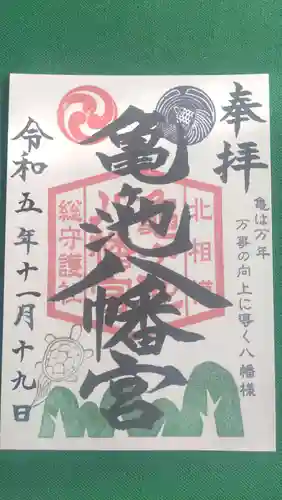 奉拝
亀は万年
万事の向上に導く八幡様
亀池八幡宮
北相模
総守護社
令和五年十一月十九日